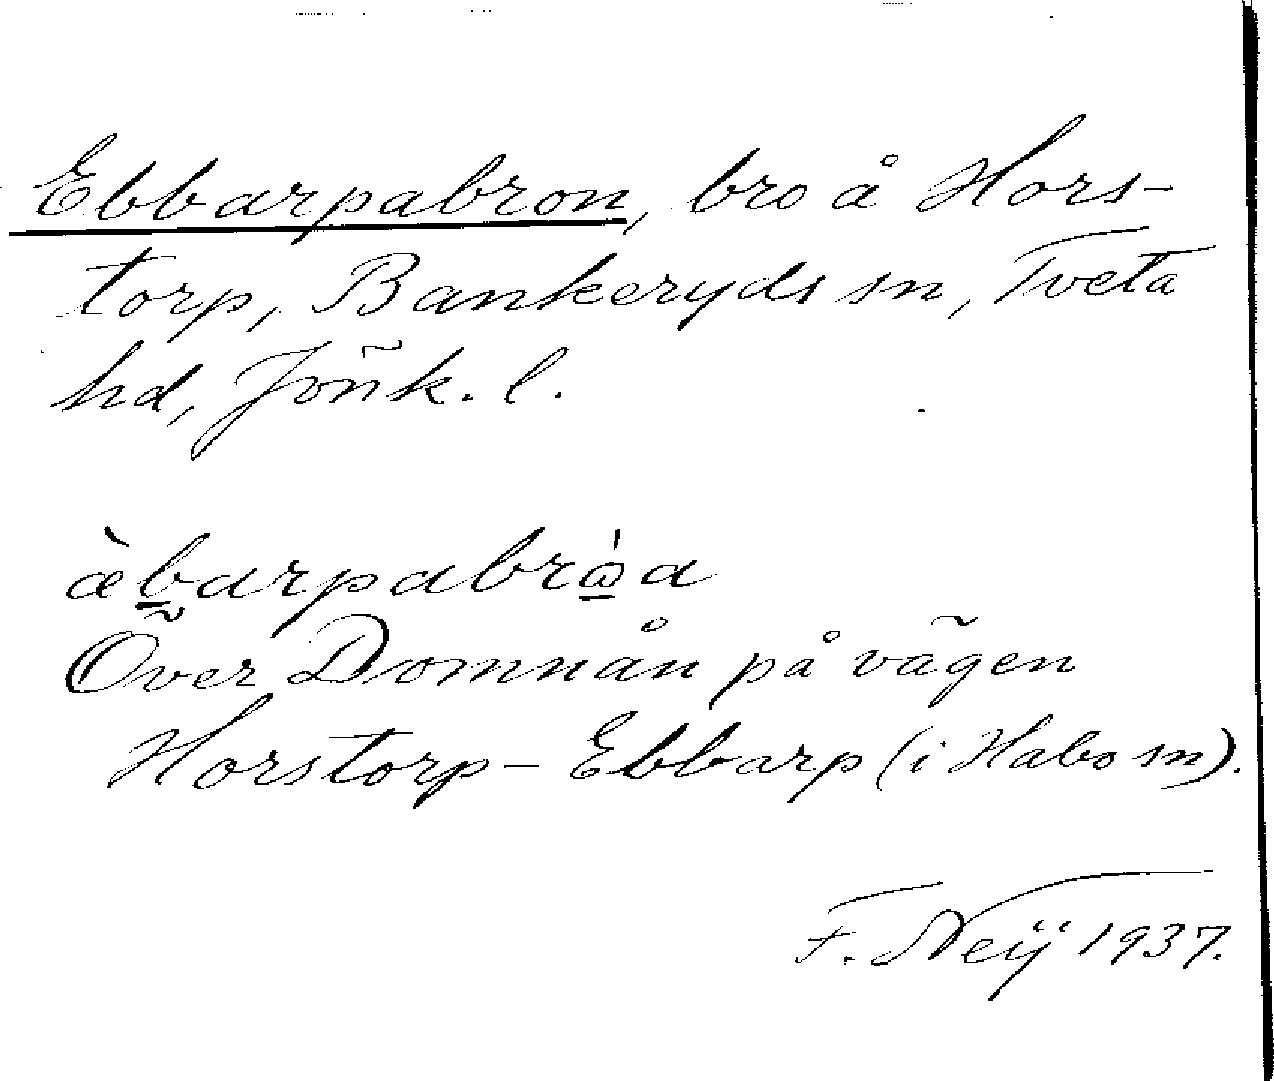 Ebbarpabron, bro å Hors-
torp, Bankeryds sn, Tveta
hd, Jönk. l.
æ̀b̲arpabrὼ̲a
Över Domnån på vägen
Horstorp - Ebbarp (i Habo sn).
F. Neij 1937.